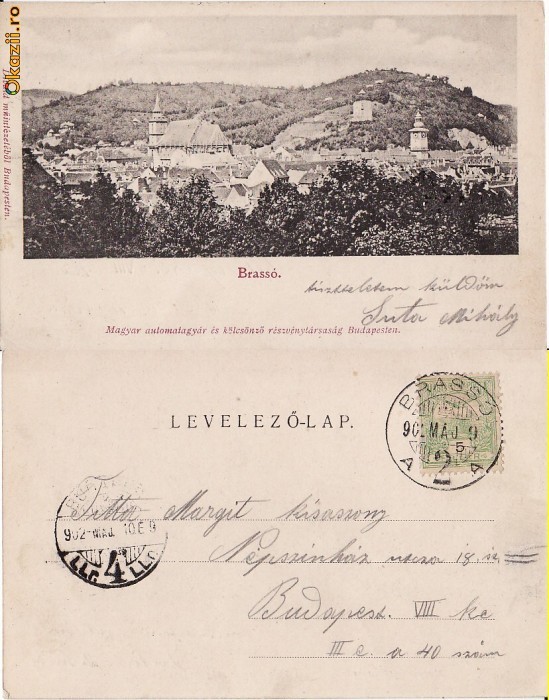 Okazii.ro
műintézetéből Budapesten.
Brassó.
tiszteletem küldöm
Suta Mihály
Magyar automatagyár és kölcsönző részvénytársaság Budapesten.
LEVELEZŐ-LAP.
BRASSÓ
902 MAJ 9
5
A 2 A
902 MAJ. 10 E 9
4
Margit kisasszony
Népszínház utcza 18 sz
Budapest. VIII ke
III e. a 40 szám